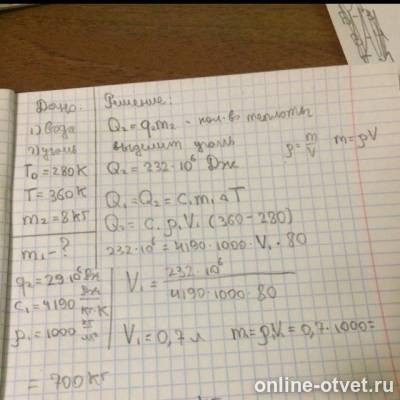 Дано:
1) Вода
2) уголь
T₀ = 280 К
T = 360 К
m₂ = 8 кг
m₁ - ?
q₂ = 29·10⁶ Дж
c₁ = 4190 Дж/кг·К
ρ₁ = 1000 кг/м³
Решение:
Q₂ = q₂m₂ - кол-во теплоты
выделит уголь
Q₂ = 232·10⁶ Дж
ρ = m/V m = ρV
Q₁ = Q₂ = c₁m₁ΔT
Q₂ = c₁ρ₁V₁ (360 - 280)
232·10⁶ = 4190·1000·V₁·80
V₁ = 232·10⁶ / 4190·1000·80
V₁ = 0,7 л m = ρ₁V = 0,7·1000 =
= 700 кг
online-otvet.ru